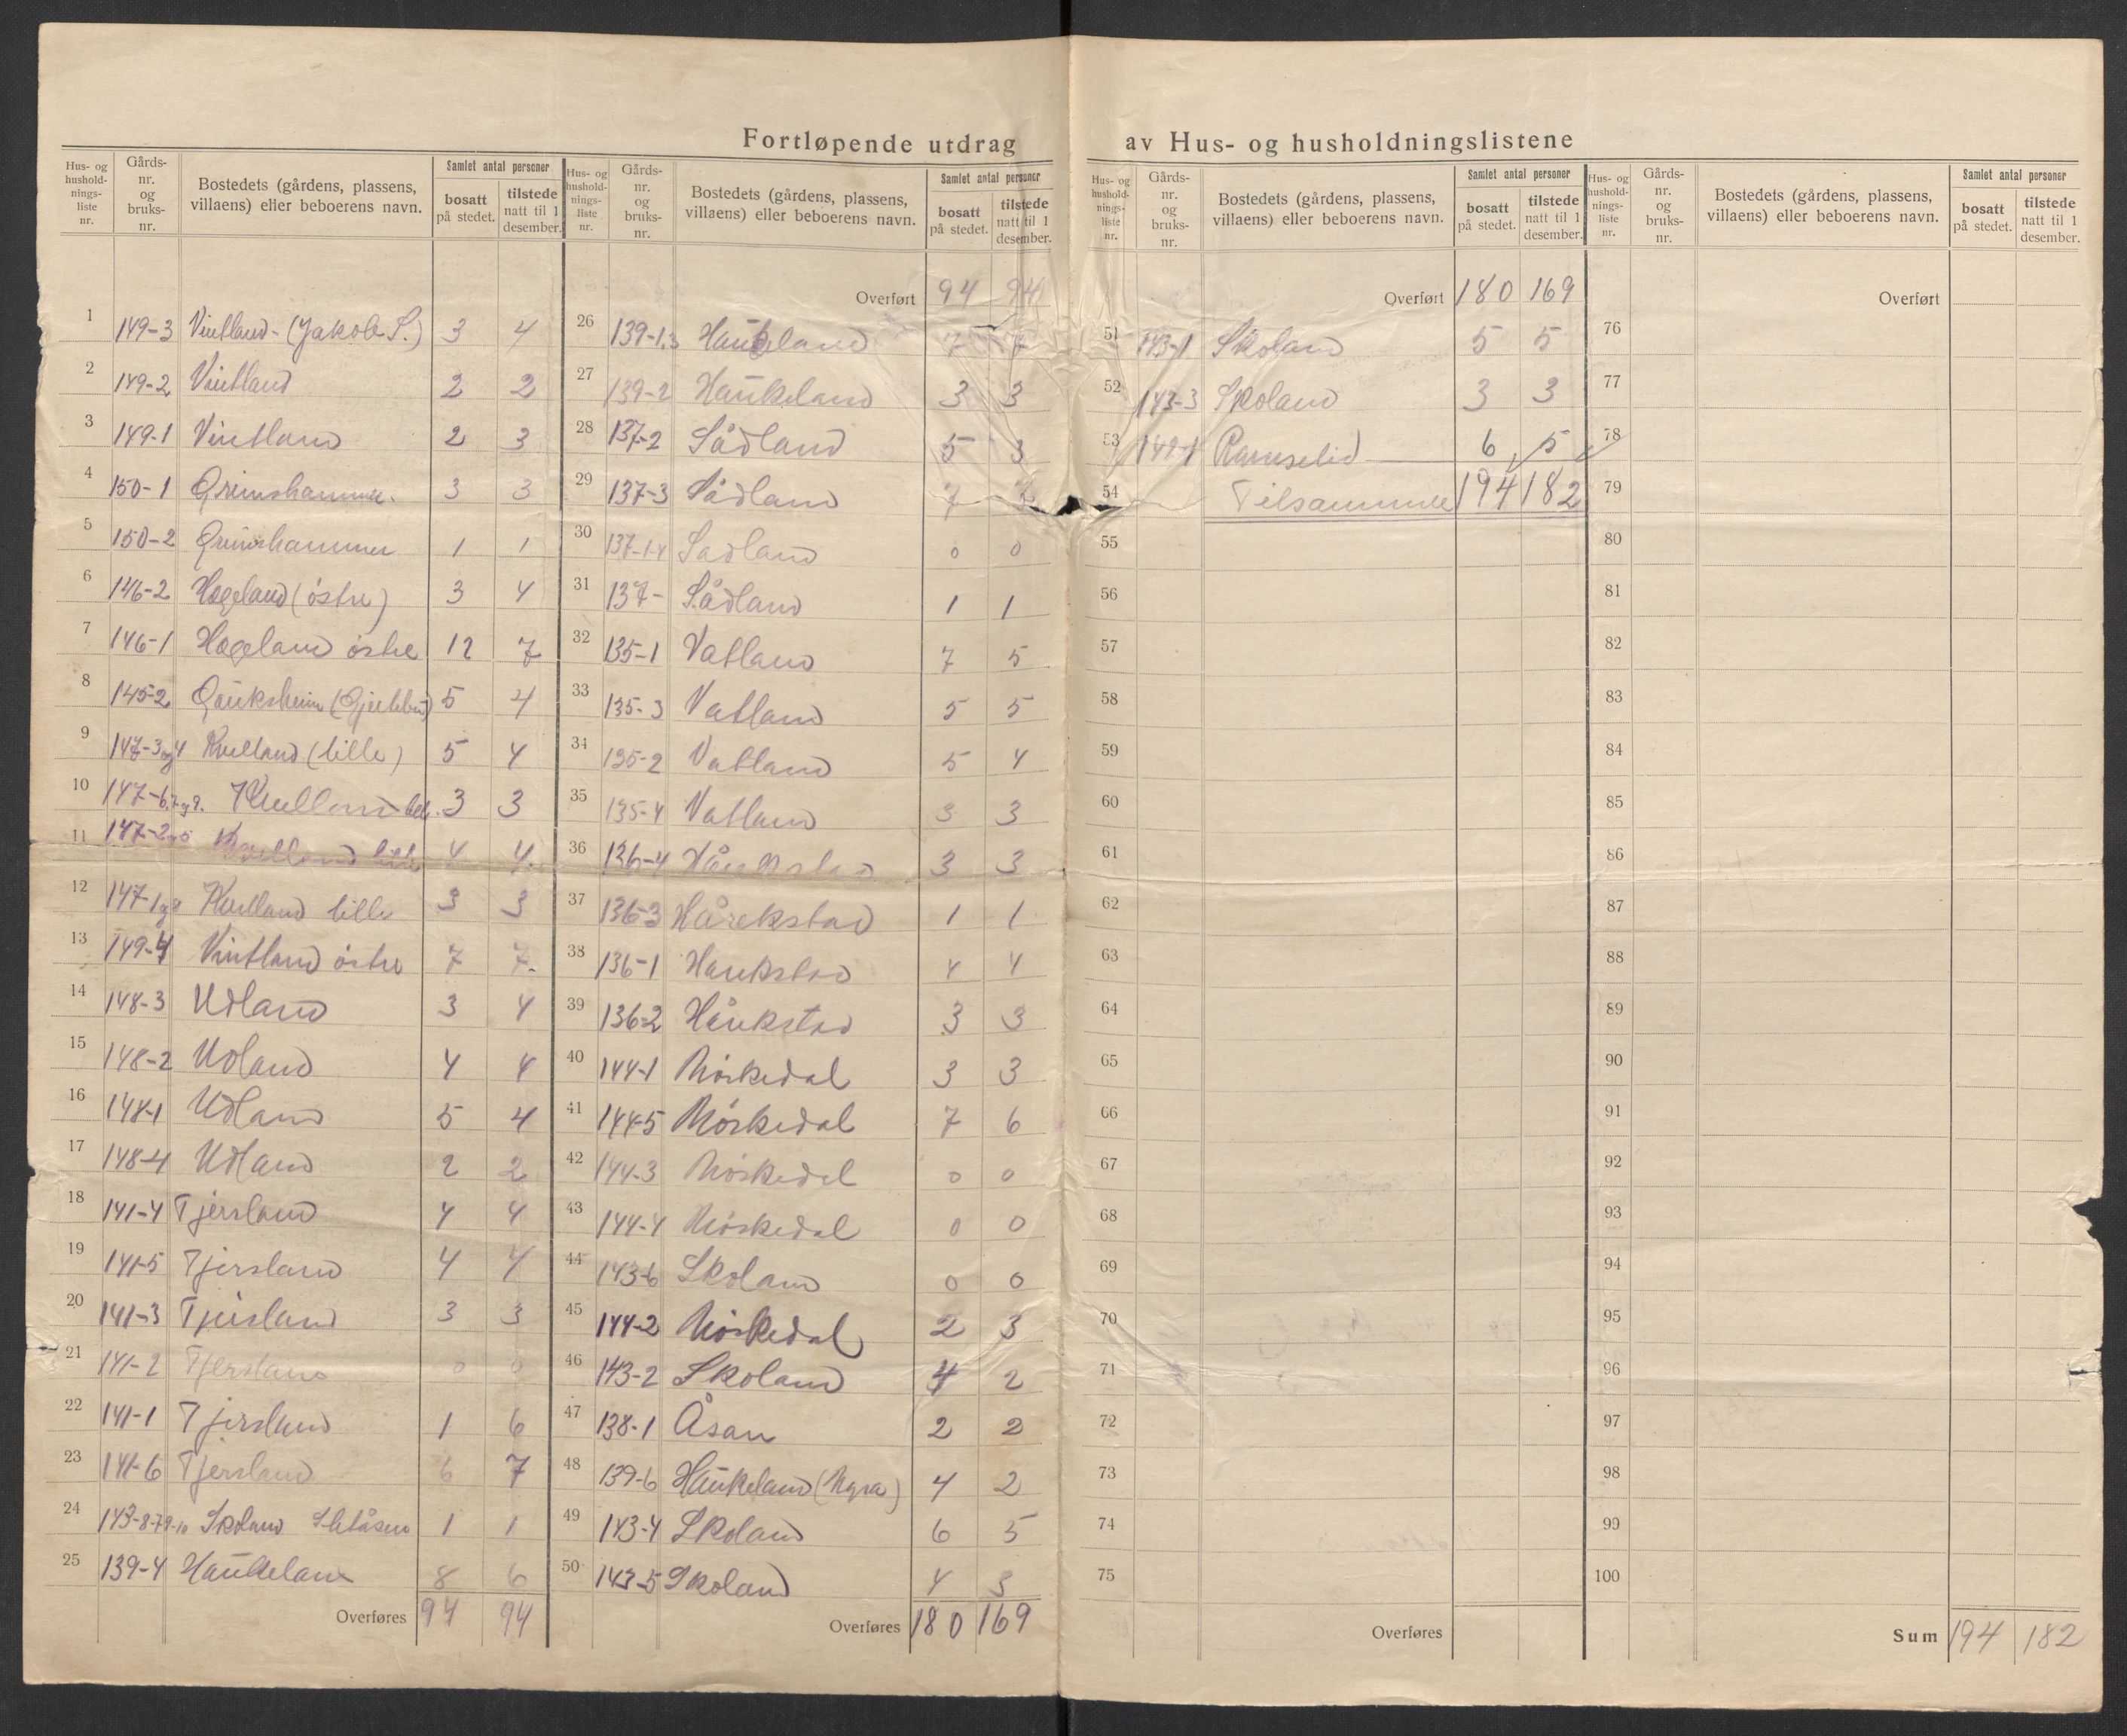 Fortløpende utdrag av Hus- og husholdningslistene
Hus- og husholdnings-liste nr. | Gårds-nr. og bruks-nr. | Bostedets (gårdens, plassens, villaens) eller beboerens navn. | Samlet antal personer | bosatt på stedet. | tilstede natt til 1 desember.
1 149-3 Vintland - (Jakob S.) 3 4
2 149-2 Vintland 2 2
3 149-1 Vintland 2 3
4 150-1 Grimshammer 3 3
5 150-2 Grimshammer 1 1
6 146-2 Hægeland (østre) 3 4
7 146-1 Hægeland østre 12 7
8 145-2 Gauksheim 5 4
9 147-3og4 Kvelland (lille) 5 4
10 147-6,7og9. Kvelland lille 3 3
11 147-2og5 Kvelland lille 4 4
12 147-1og Kvelland lille 3 3
13 149-4 Vintland østre 7 7
14 148-3 Udland 3 4
15 148-2 Udland 4 4
16 148-1 Udland 5 4
17 148-4 Udland 2 2
18 141-4 Tjersland 4 4
19 141-5 Tjersland 4 4
20 141-3 Tjersland 3 3
21 141-2 Tjersland 0 0
22 141-1 Tjersland 1 6
23 141-6 Tjersland 6 7
24 143-8-79-10 Skoland 1 1
25 139-4 Haukeland 8 6
Overføres 94 94
Hus- og husholdnings-liste nr. | Gårds-nr. og bruks-nr. | Bostedets (gårdens, plassens, villaens) eller beboerens navn. | Samlet antal personer | bosatt på stedet. | tilstede natt til 1 desember.
Overført 94 94
26 139-1,3 Haukeland 7 7
27 139-2 Haukeland 3 3
28 137-2 Sådland 5 3
29 137-3 Sådland 7
30 137-1-4 Sadland 0 0
31 137- Sådland 1 1
32 135-1 Vatland 7 5
33 135-3 Vatland 5 5
34 135-2 Vatland 5 4
35 135-4 Vatland 3 3
36 136-4 Hårekstad 3 3
37 136-3 Hårekstad 1 1
38 136-1 Harekstad 4 4
39 136-2 Hårekstad 3 3
40 144-1 Mörkedal 3 3
41 144-5 Mörkedal 7 6
42 144-3 Mörkedal 0 0
43 144-4 Mörkedal 0 0
44 143-6 Skoland 0 0
45 144-2 Mörkedal 2 3
46 143-2 Skoland 4 2
47 138-1 Åsan 2 2
48 139-6 Haukeland (Myra) 4 2
49 143-4 Skoland 6 5
50 143-5 Skoland 4 3
Overføres 180 169
Hus- og husholdnings-liste nr. | Gårds-nr. og bruks-nr. | Bostedets (gårdens, plassens, villaens) eller beboerens navn. | Samlet antal personer | bosatt på stedet. | tilstede natt til 1 desember.
Overført 180 169
51 143-1 Skoland 5 5
52 143-3 Skoland 3 3
53 142-1 Ramselid 6 5
54 Tilsammen 194 182
55
56
57
58
59
60
61
62
63
64
65
66
67
68
69
70
71
72
73
74
75
Overføres
Hus- og husholdnings-liste nr. | Gårds-nr. og bruks-nr. | Bostedets (gårdens, plassens, villaens) eller beboerens navn. | Samlet antal personer | bosatt på stedet. | tilstede natt til 1 desember.
Overført
76
77
78
79
80
81
82
83
84
85
86
87
88
89
90
91
92
93
94
95
96
97
98
99
100
Sum 194 182